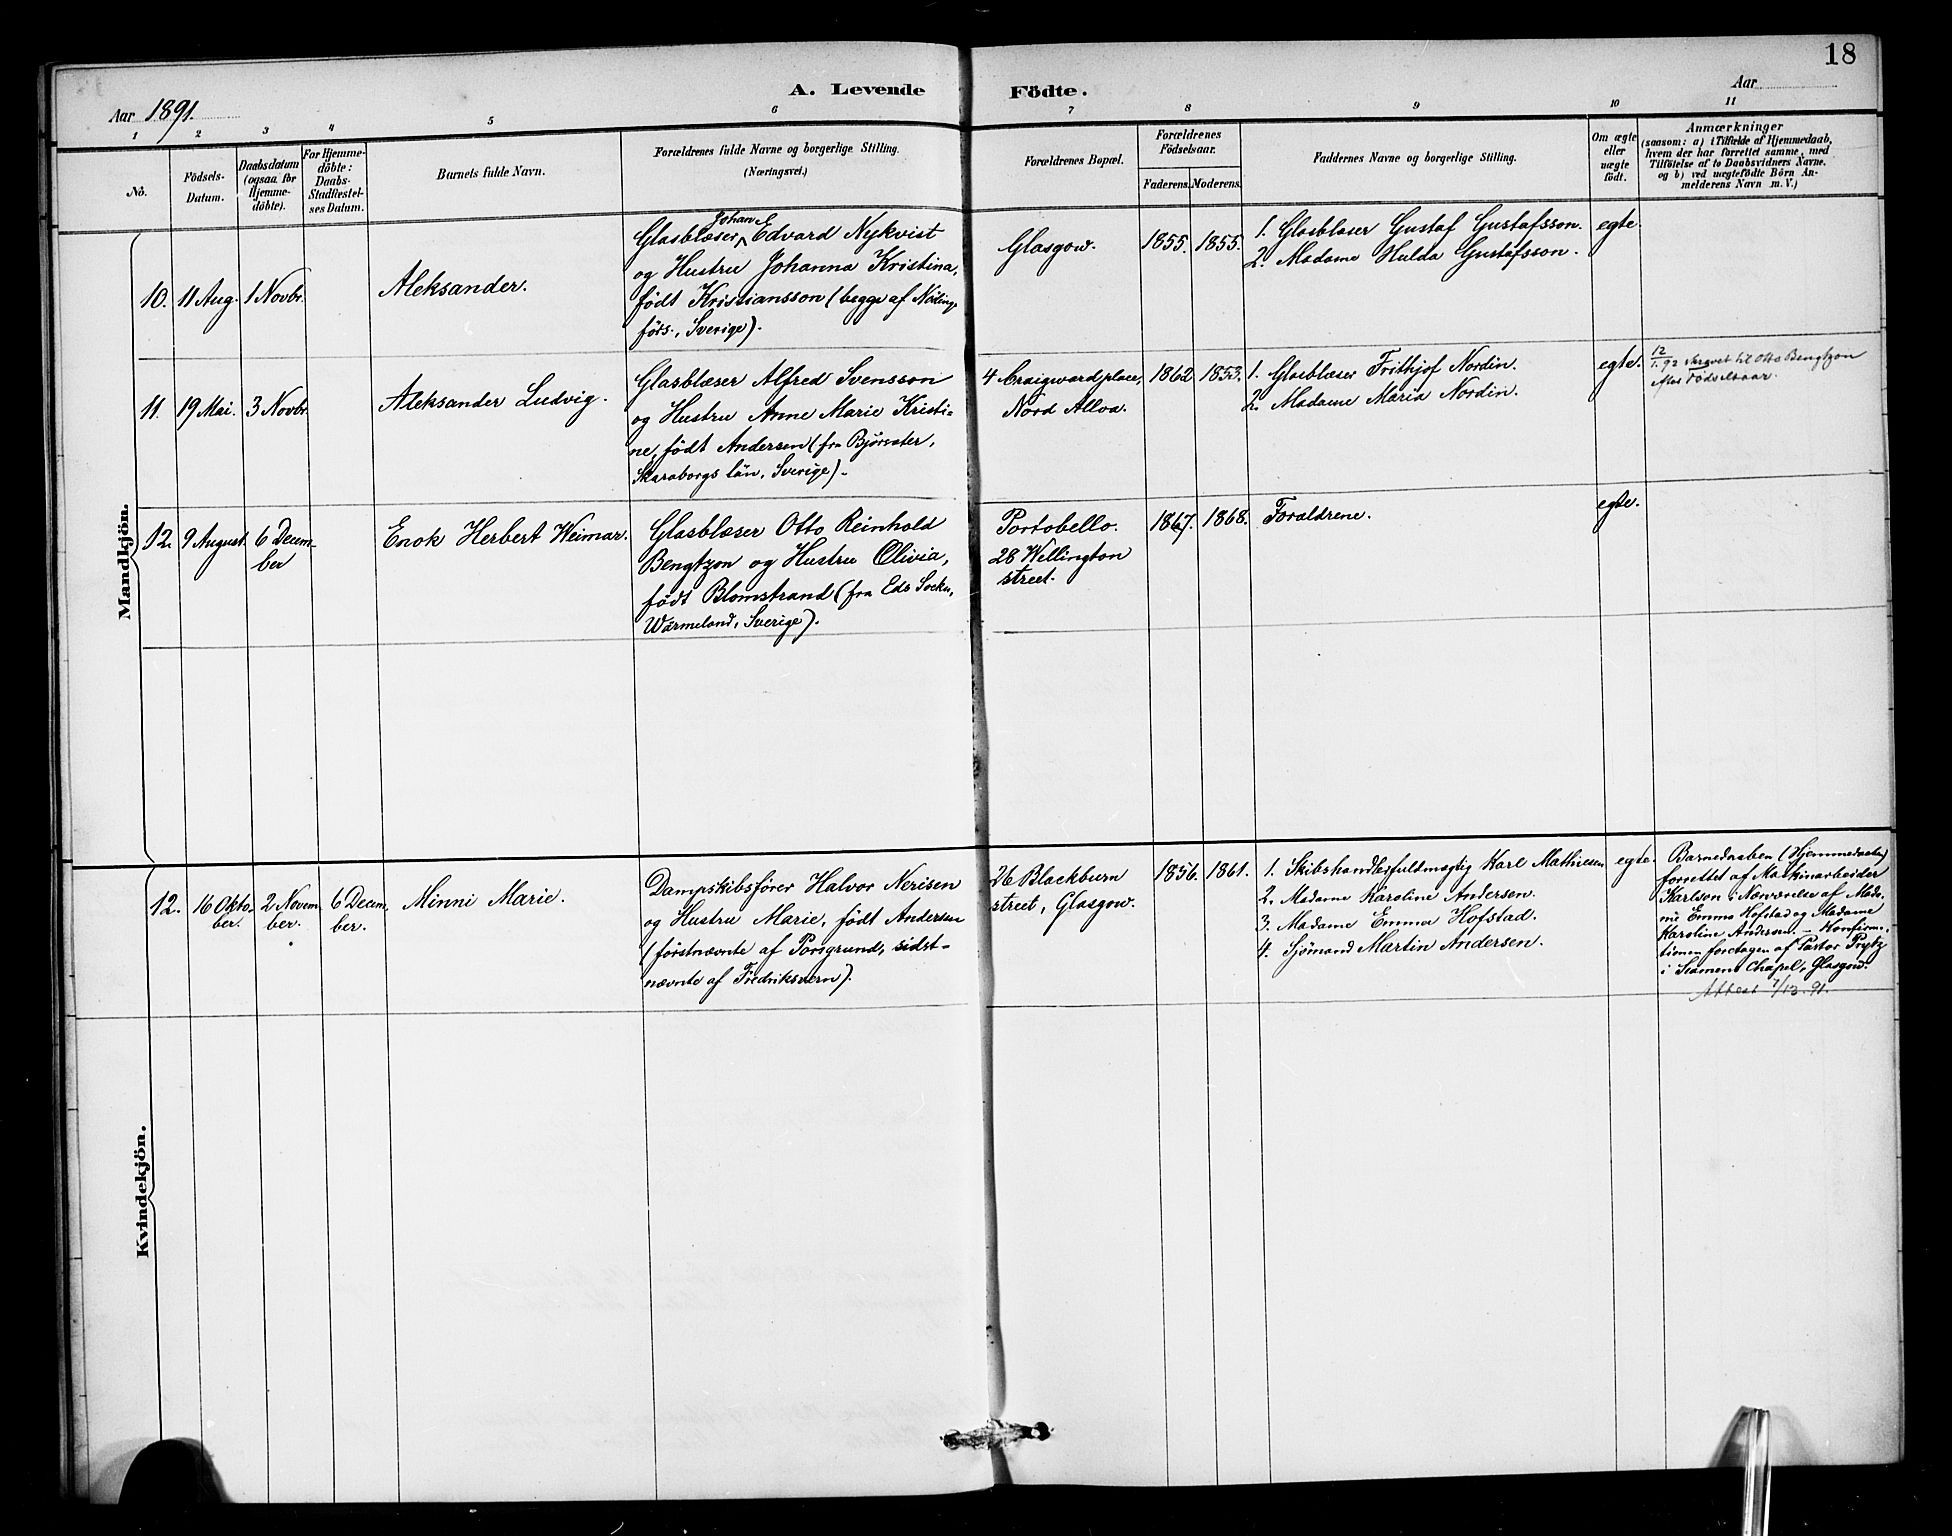 18
A. Levende Födte.
Aar 1891.
Aar
1 2 3 4 5 6 7 8 9 10 11
No.
Födsels-
Datum.
Daabsdatum
(ogsaa for
Hjemme-
döbte).
For Hjemme-
döbte:
Daabs-
Stadfæstel-
ses Datum.
Barnets fulde Navn.
Forældrenes fulde Navne og borgerlige Stilling.
(Næringsvei.)
Forældrenes Bopæl.
Forældrenes
Födselsaar.
Faderens. Moderens.
Faddernes Navne og borgerlige Stilling.
Om ægte
eller
uægte
födt.
Anmærkninger
(saasom: a) i Tilfælde af Hjemmedaab,
hvem der har forrettet samme, med
Tilföielse af to Daabsvidners Navne,
og b) ved uægtefödte Börn An-
melderens Navn m. V.)
Mandkjön.
10. 11 Aug. 1 Novbr.
Aleksander.
Johan
Glasblæser Edvard Nykvist
og Hustru Johanna Kristina,
født Kristiansson (begge af
førs., Sverige).
Glasgow.
1855. 1855.
1. Glasblæser Gustaf Gustafsson.
2. Madame Hulda Gustafsson.
egte.
11. 19 Mai. 3 Novbr.
Aleksander Ludvig.
Glasblæser Alfred Svensson
og Hustru Anne Marie Kristi-
ne, født Andersen (fra Bjørsäter,
Skaraborgs län, Sverige).
4 Craigwardplace,
Nord Alloa.
1862 1853.
1. Glasblæser Frithjof Nordin.
2. Madame Maria Nordin.
egte.
12/1. 92 skrevet til Otto Bengtzon
efter Fødselsaar.
12. 9 August. 6 Decem-
ber
Enok Herbert Weimar.
Glasblæser Otto Reinhold
Bengtzon og Hustru Olivia,
født Blomstrand (fra Eds Sockn,
Wärmeland, Sverige).
Portobello.
28 Wellington
street.
1867. 1868.
Forældrene.
egte.
Kvindekjön.
12. 16 Okto-
ber.
2 Novem-
ber.
6 Decem-
ber.
Minni Marie.
Dampskibsfører Halvor Nerisen
og Hustru Marie, født Andersen
(førstnævnte af Porsgrund, sidst-
nævnte af Fredriksværn).
26 Blackburn
street, Glasgow.
1856. 1861.
1. Skibshandlerfuldmægtig Karl Mathiesen
2. Madame Karoline Andersen.
3. Madame Emma Hofstad.
4. Sjømand Martin Andersen.
egte.
Barnedaaben (Hjemmedaaben)
forrettet af Maskinarbeider
Karlson i Nærværelse af Mada-
me Emma Hofstad og Madame
Karoline Andersen. – Konfirma-
tionen foretagen af Pastor Prytz
i Seamens Chapel, Glasgow.
Attest 7/12. 91.